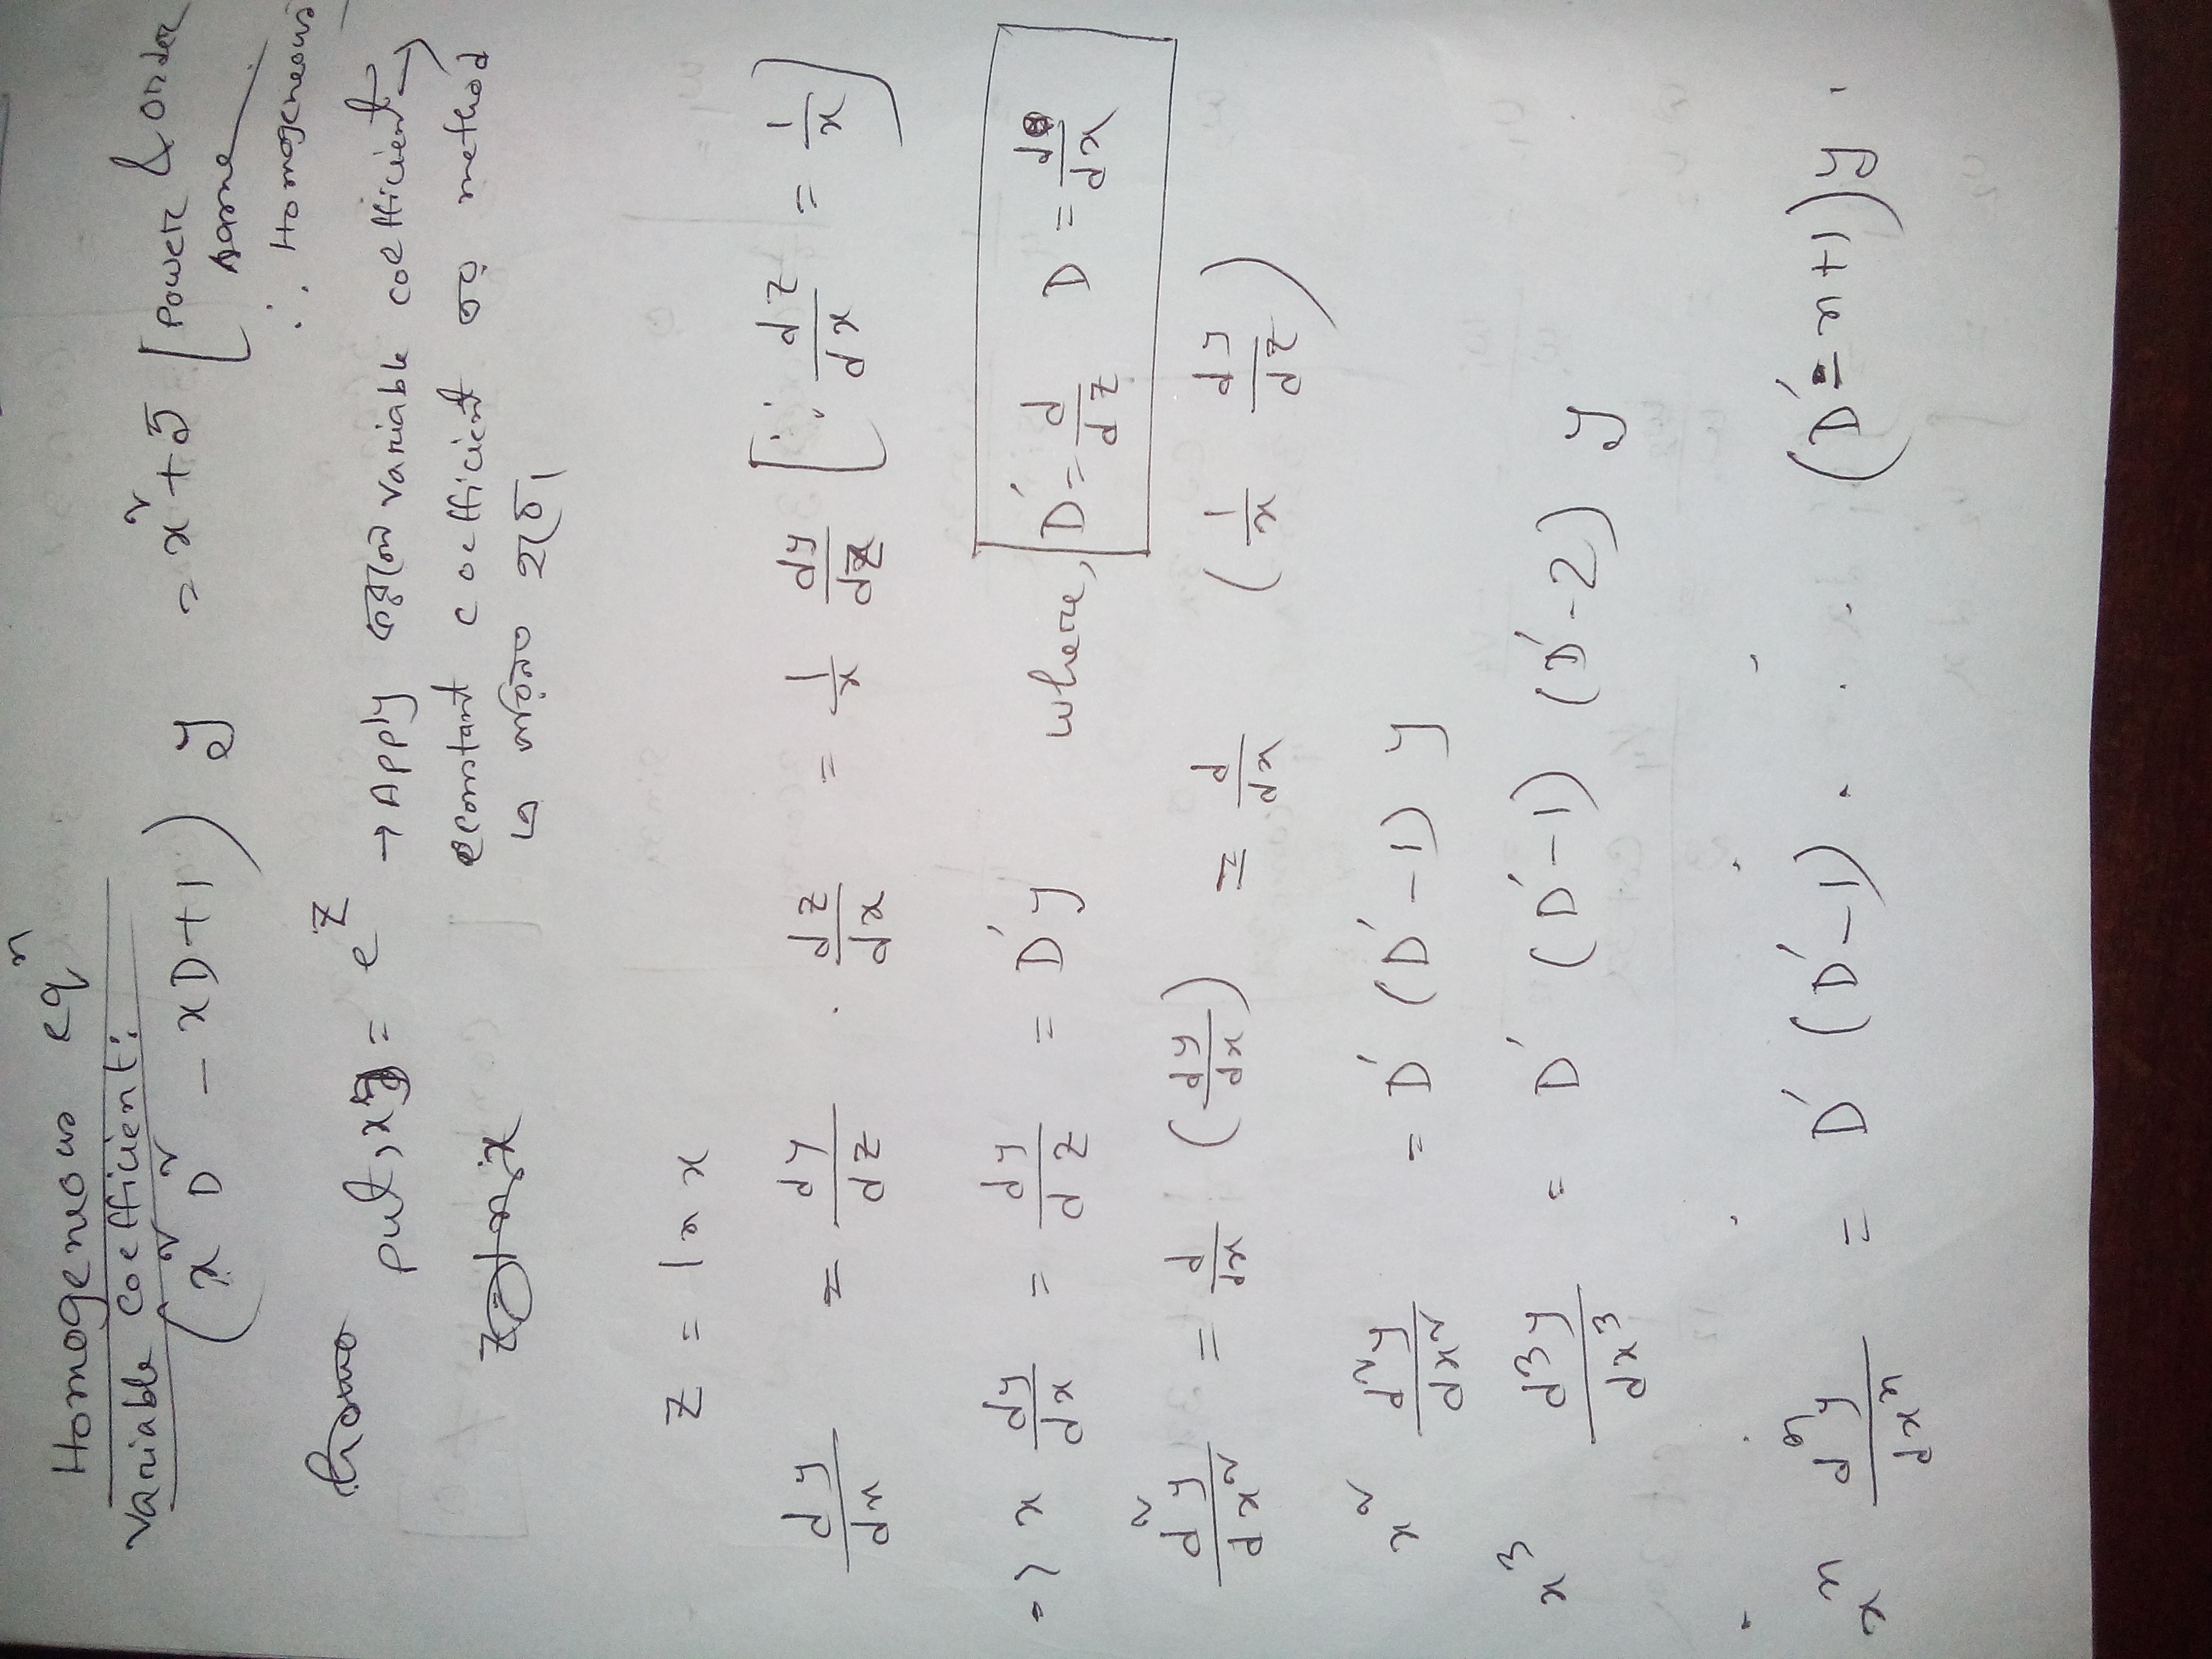 Homogeneous eqⁿ
variable coefficient:
(x² D² - xD+1) y = x²+5 [Power & order same
∴ Homogeneous
put, x = e^z → Apply করলে variable coefficient →
constant coefficient এর method
এ হবে।
z = ln x
dy/dx = dy/dz · dz/dx = 1/x dy/dz [∵ dz/dx = 1/x]
=> x dy/dx = dy/dz = D'y where, D' = d/dz D = d/dx
d²y/dx² = d/dx (dy/dx) = d/dx (1/x dy/dz)
x² d²y/dx² = D' (D'-1) y
x³ d³y/dx³ = D' (D'-1) (D'-2) y
xⁿ dⁿy/dxⁿ = D' (D'-1) . . . . (D'-n+1)) y .